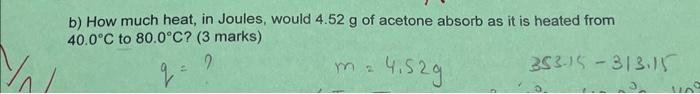 b) How much heat, in Joules, would 4.52 g of acetone absorb as it is heated from
40.0°C to 80.0°C? (3 marks)
q = ? m = 4.52g 353.15 - 313.15